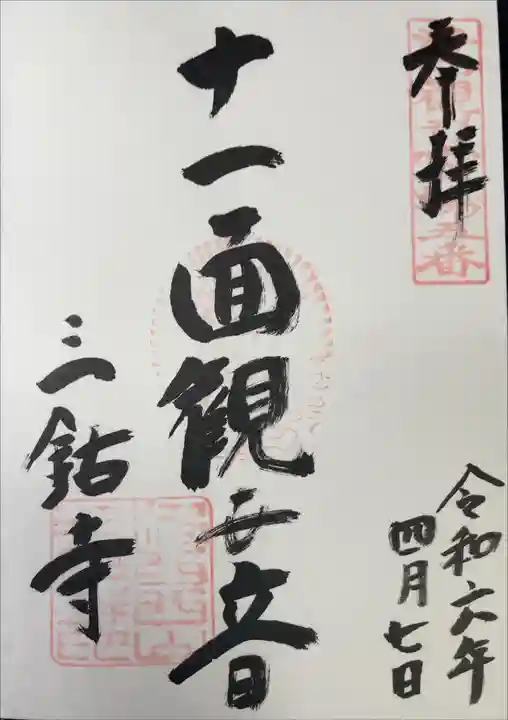 奉拝
令和六年
四月七日
十一面観世音
三鈷寺